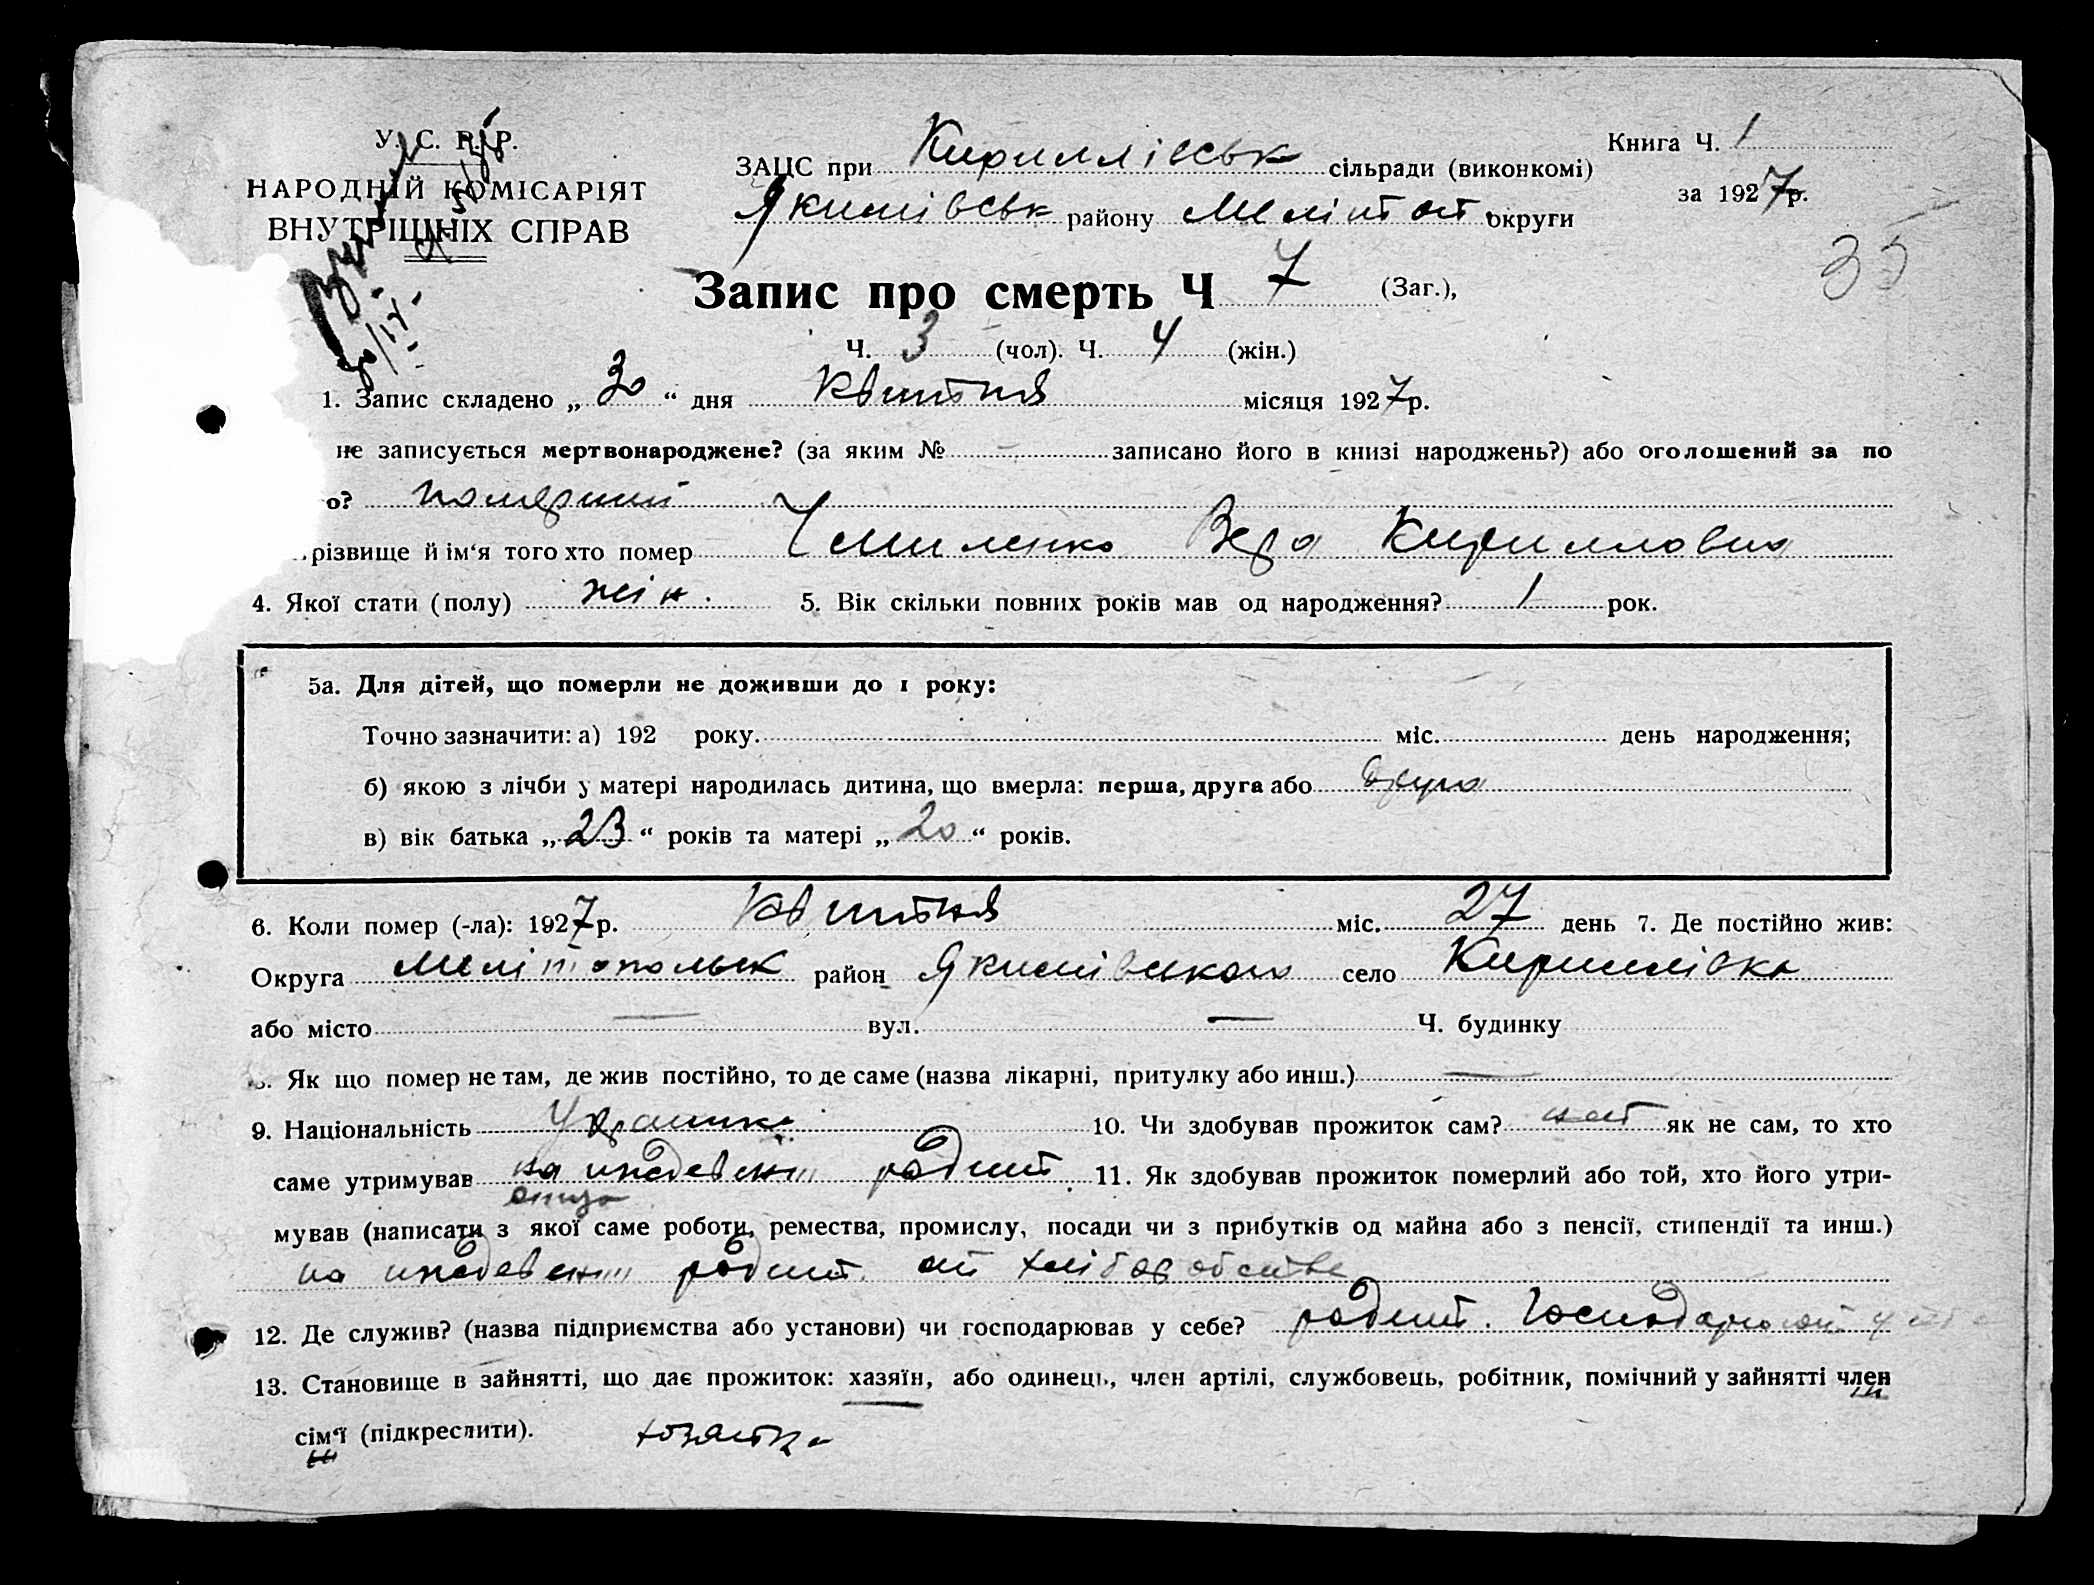 У. С. Р. Р.
НАРОДНІЙ КОМІСАРІЯТ
ВНУТРІШНІХ СПРАВ
ЗАЦС при Кириллівськ сільради (виконкомі)
Якимівськ району Мелітоп округи
Книга Ч. 1
за 1927р.
35
Запис про смерть Ч 7 (Заг.),
Ч. 3 (чол). Ч. 4 (жін.)
1. Запис складено „ 30 “ дня Квітня місяця 1927р.
не записується мертвонароджене? (за яким № — записано його в книзі народжень?) або оголошений за по
о? померший
різвище й ім‘я того хто помер Чмиленко Вера Кирилловна
4. Якої стати (полу) жін. 5. Вік скільки повних років мав од народження? 1 рок.
5а. Для дітей, що померли не доживши до 1 року:
Точно зазначити: а) 192 року. міс. день народження;
б) якою з лічби у матері народилась дитина, що вмерла: перша, друга або друга
в) вік батька „ 23 “ років та матері „ 20 “ років.
6. Коли помер (-ла): 1927р. Квітня міс. 27 день 7. Де постійно жив:
Округа Мелітопольск район Якимівського село Кириллівка
або місто — вул. — Ч. будинку
8. Як що помер не там, де жив постійно, то де саме (назва лікарні, притулку або инш.) —
9. Національність Украинка 10. Чи здобував прожиток сам? нет як не сам, то хто
саме утримував на иждевении родит 11. Як здобував прожиток померлий або той, хто його утри-
отца
мував (написати з якої саме роботи, ремества, промислу, посади чи з прибутків од майна або з пенсії, стипендії та инш.)
на иждевении родит. от
12. Де служив? (назва підприємства або установи) чи господарював у себе? родит.
13. Становище в зайнятті, що дає прожиток: хазяїн, або одинець, член артілі, службовець, робітник, помічний у зайнятті член
сім‘ї (підкреслити).